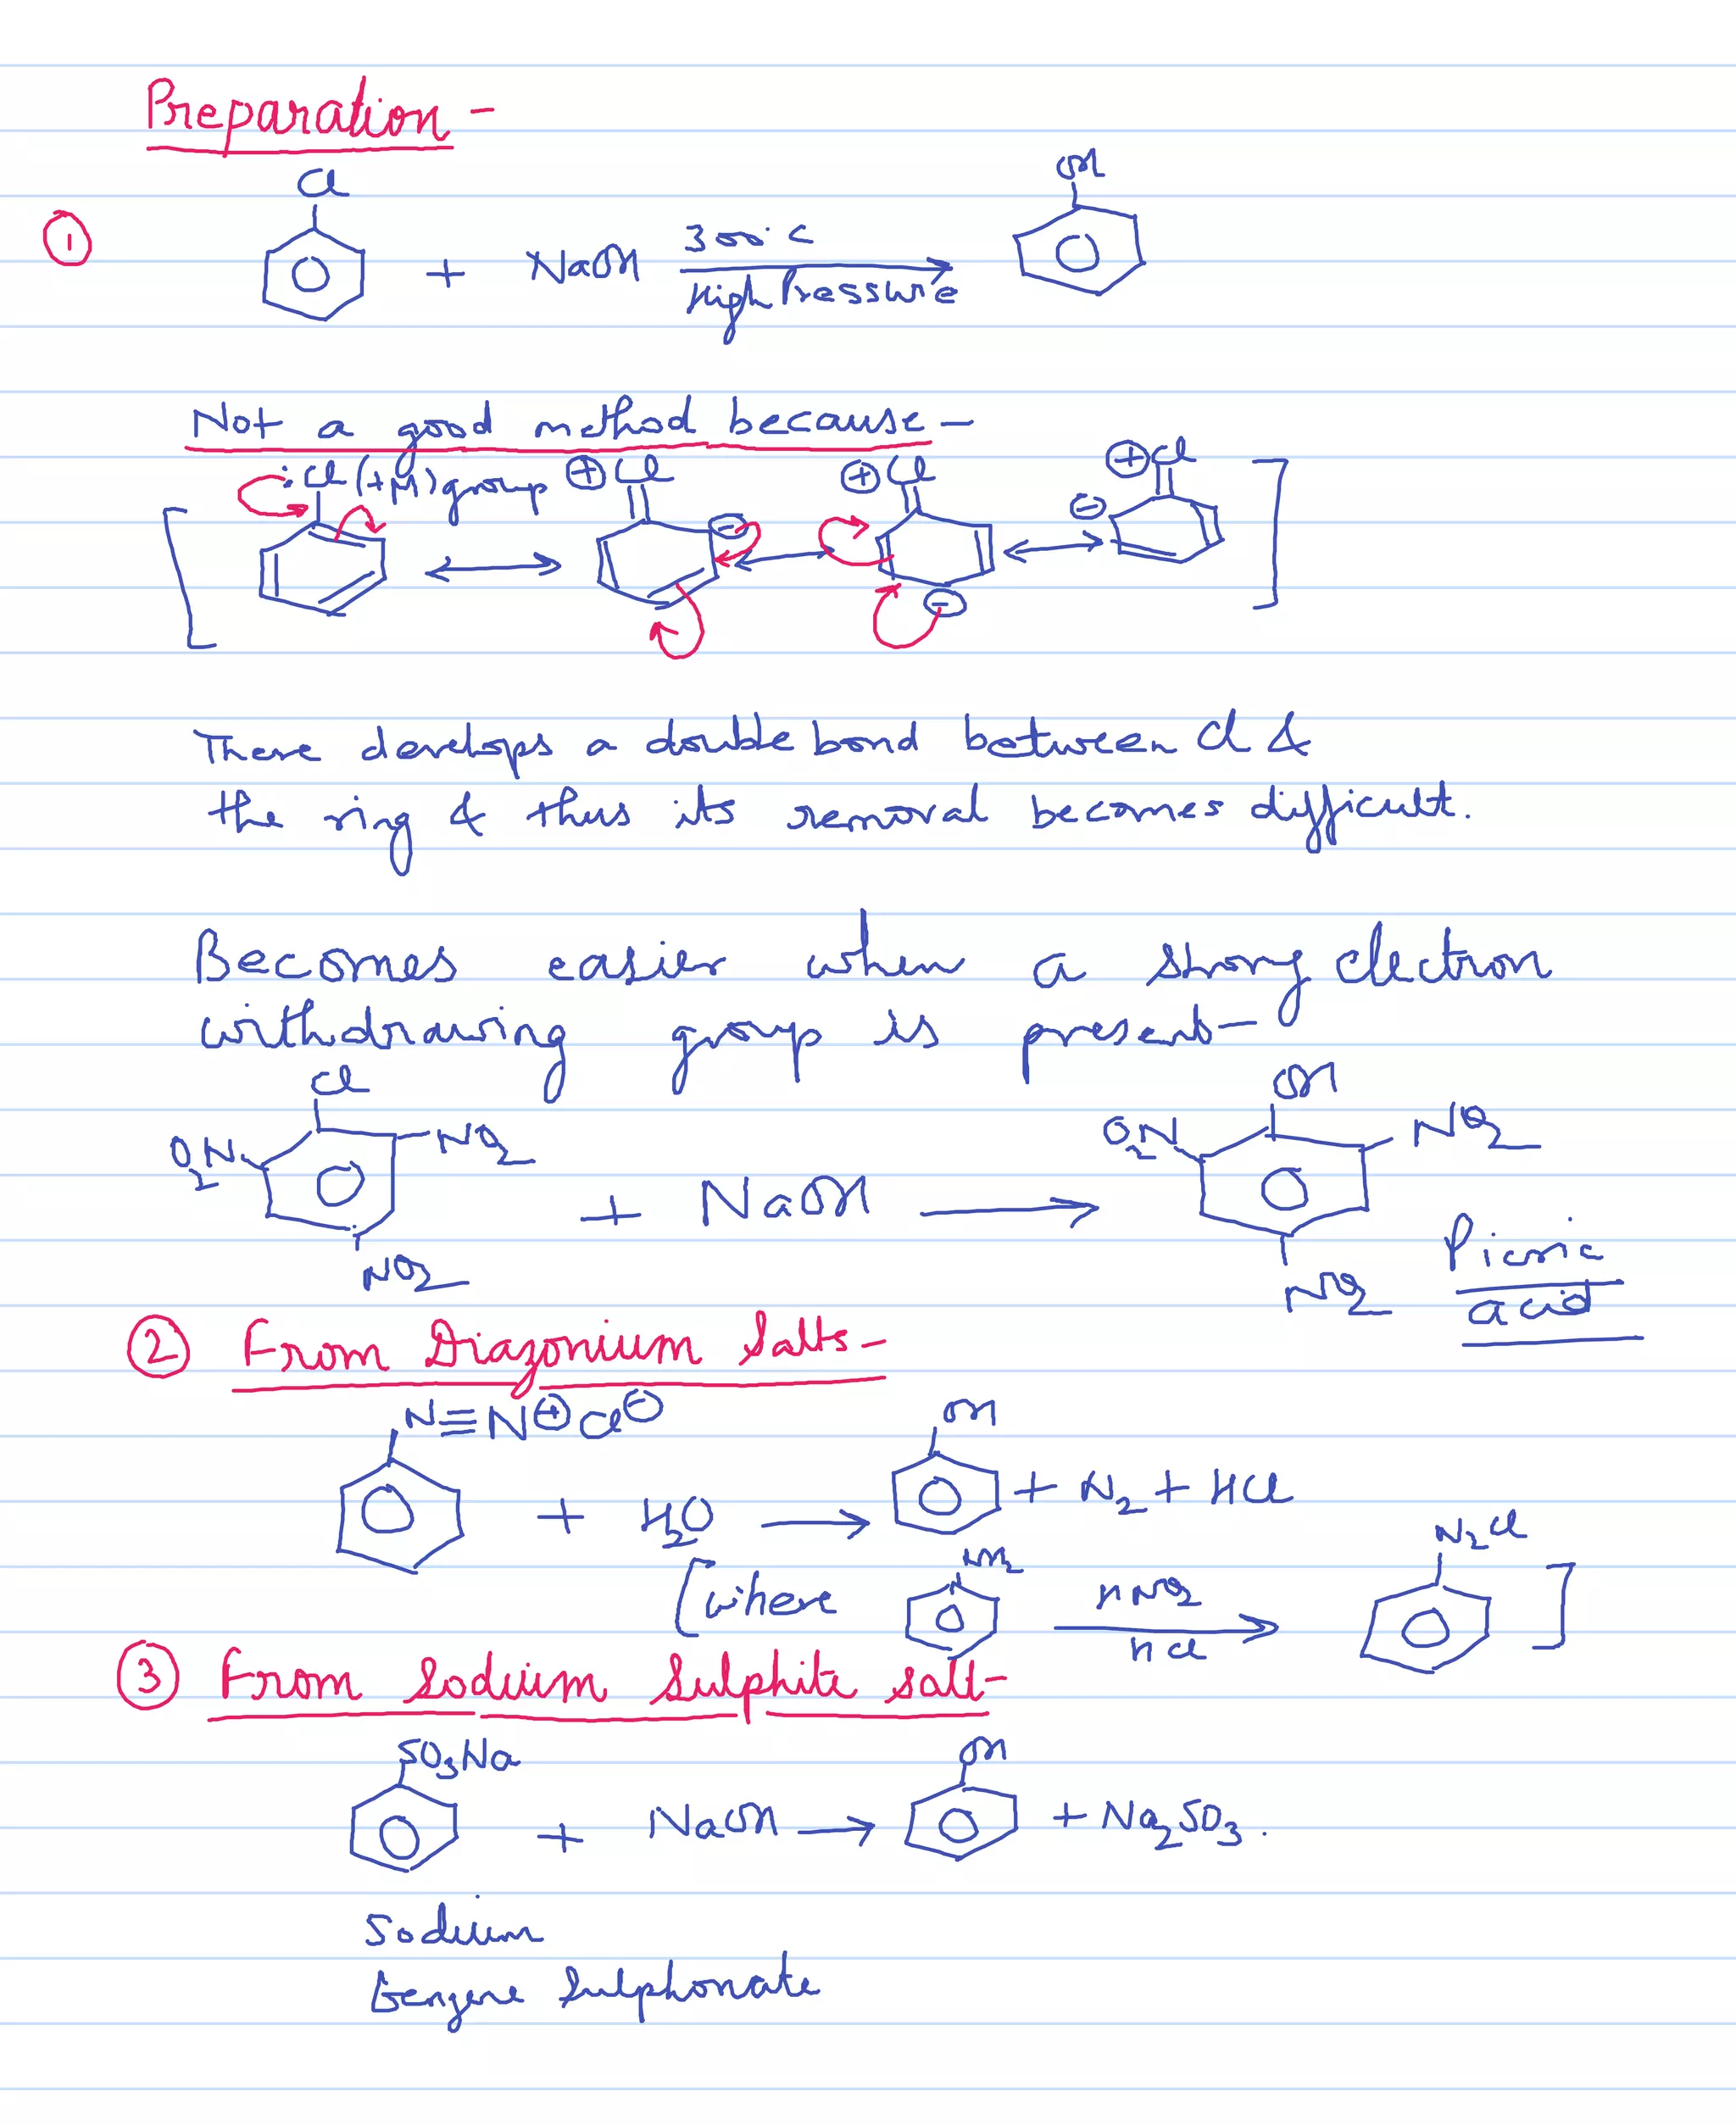 Preparation -
Cl
OH
①
+ NaOH
300°C
High Pressure
Not a good method because -
:Cl (+M) group
⊕Cl
⊕Cl
⊕Cl
⊖
⊖
⊖
There develops a double bond between Cl &
the ring & thus its removal becomes difficult.
Becomes easier when a strong electron
withdrawing group is present -
Cl
OH
O2N
NO2
O2N
NO2
+ NaOH
NO2
NO2
Picric
acid
② From Diazonium Salts -
N≡N⊕Cl⊖
OH
+ H2O
+ N2 + HCl
[where
NH2
HNO2
HCl
N2Cl
]
③ From Sodium Sulphite salt -
SO3Na
OH
+ NaOH
+ Na2SO3.
Sodium
benzene Sulphonate